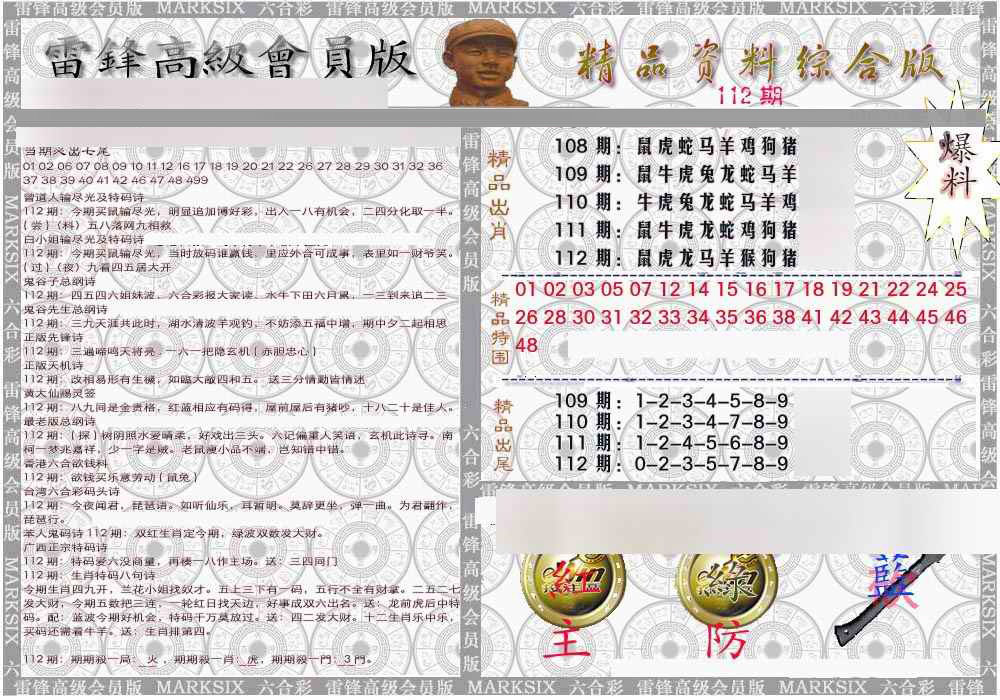 雷锋高级会员版 MARKSIX 六合彩 雷锋高级会员版 MARKSIX 六合彩 雷锋高级会员版 MARKSIX 六合彩 雷锋
雷鋒高級會員版
精品资料综合版
112 期
爆料
当期突出七尾
01 02 06 07 08 09 10 11 12 16 17 18 19 20 21 22 26 27 28 29 30 31 32 36
37 38 39 40 41 42 46 47 48 499
曾道人输尽光及特码诗
112 期：今期买鼠输尽光，明显追加博好彩，出入一八有机会，二四分化取一半。
{ 尝 }（料）五八落网九相救
白小姐输尽光及特码诗
112 期：今期买鼠输尽光，当时放码谁赢钱，里应外合可成事，表里如一财爷笑。
{ 过 }（夜）九看四五居大开
鬼谷子总纲诗
112 期：四五四六姐妹波，六合彩报大家读，水牛下田六月累，一三到来追二三
鬼谷先生总纲诗
112 期：三九天涯共此时，湖水清波羊观钓，不妨添五福中增，期中夕二起相思
正版先锋诗
112 期：三遍啼鸣天将亮，一六一把隐玄机 { 赤胆忠心 }
正版天机诗
112 期：改相易形有生機，如臨大敵四和五。 送三分情勤皆情迷
黄大仙赐灵签
112 期：八九同是金贵格，红蓝相应有码得，屋前屋后有猪吵，十八二十是佳人。
最老版总纲诗
112 期：{ 探 } 树阴照水爱晴柔，好戏出三头。六记偏重人笑语，玄机此诗寻。南
柯一梦兆嘉祥，少一字是贼。老鼠瘦小品不端，岂知错中错。
香港六合欲钱料
112 期：欲钱买乐意劳动 { 鼠兔 }
台湾六合彩码头诗
112 期：今夜闻君，琵琶语。如听仙乐，耳暂明。莫辞更坐，弹一曲。为君翻作，
琵琶行。
笨人鬼码诗 112 期：双红生肖定今期，绿波双数发大财。
广西正宗特码诗
112 期：特码爱六没商量，再楼一八作主场。送：三四同门
112 期：生肖特码八句诗
今期生肖四九开，兰花小姐找奴才。五上三下有一码，五行不全有财拿。二五二七
发大财，今期五数把三连，一轮红日找天边，好事成双六出名。送：龙前虎后中特
码。配：蓝波今期好机会，特码千万莫放过。送：四二发大财。十二生肖乐中乐，
买码还需看牛羊。送：生肖排第四。
112 期：期期殺一局：火，期期殺一肖：虎，期期殺一門：3 門。
精品出肖
108 期：鼠虎蛇马羊鸡狗猪
109 期：鼠牛虎兔龙蛇马羊
110 期：牛虎兔龙蛇马羊鸡
111 期：鼠牛虎龙蛇鸡狗猪
112 期：鼠虎龙马羊猴狗猪
精品特围
01 02 03 05 07 12 14 15 16 17 18 19 21 22 24 25
26 28 30 31 32 33 34 35 36 38 41 42 43 44 45 46
48
精品出尾
109 期：1-2-3-4-5-8-9
110 期：1-2-3-4-7-8-9
111 期：1-2-4-5-6-8-9
112 期：0-2-3-5-7-8-9
紅
綠
藍
主
防
雷锋高级会员版 MARKSIX 六合彩 雷锋高级会员版 MARKSIX 六合彩 雷锋高级会员版 MARKSIX 六合彩 雷锋